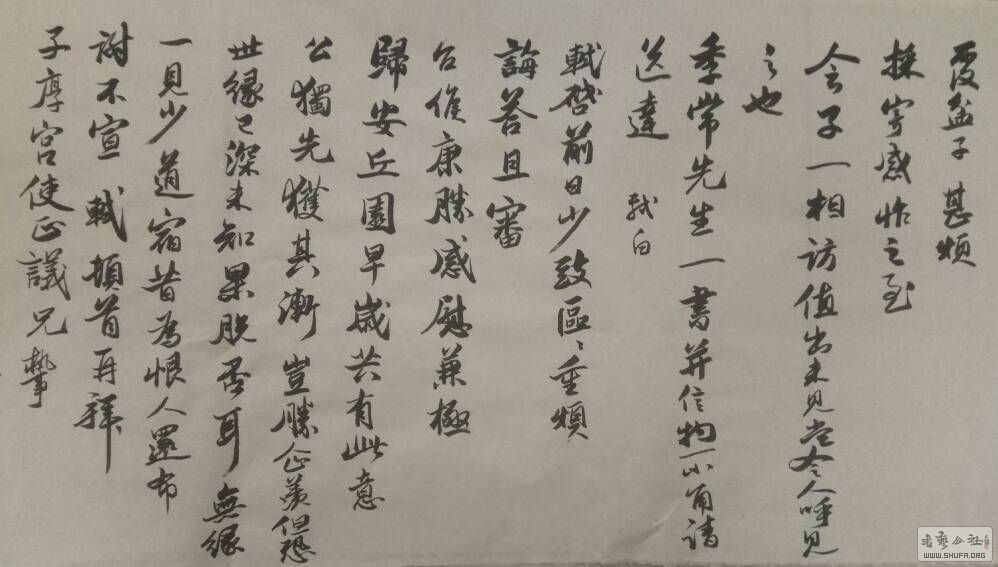 覆盆子甚煩
採寄感怍之至
令子一相訪值出未見當令人呼見
之也
季常先生一書并信物一小角請
送達 軾白
軾啓前日少致區〻重煩
誨答且審
台候康勝感慰兼極
歸安丘園早歲共有此意
公獨先獲其漸豈勝企羨但恐
世緣已深未知果脫否耳無緣
一見少道宿昔為恨人還布
謝不宣 軾頓首再拜
子厚宮使正議兄執事
書藝公社
WWW.SHUFR.ORG